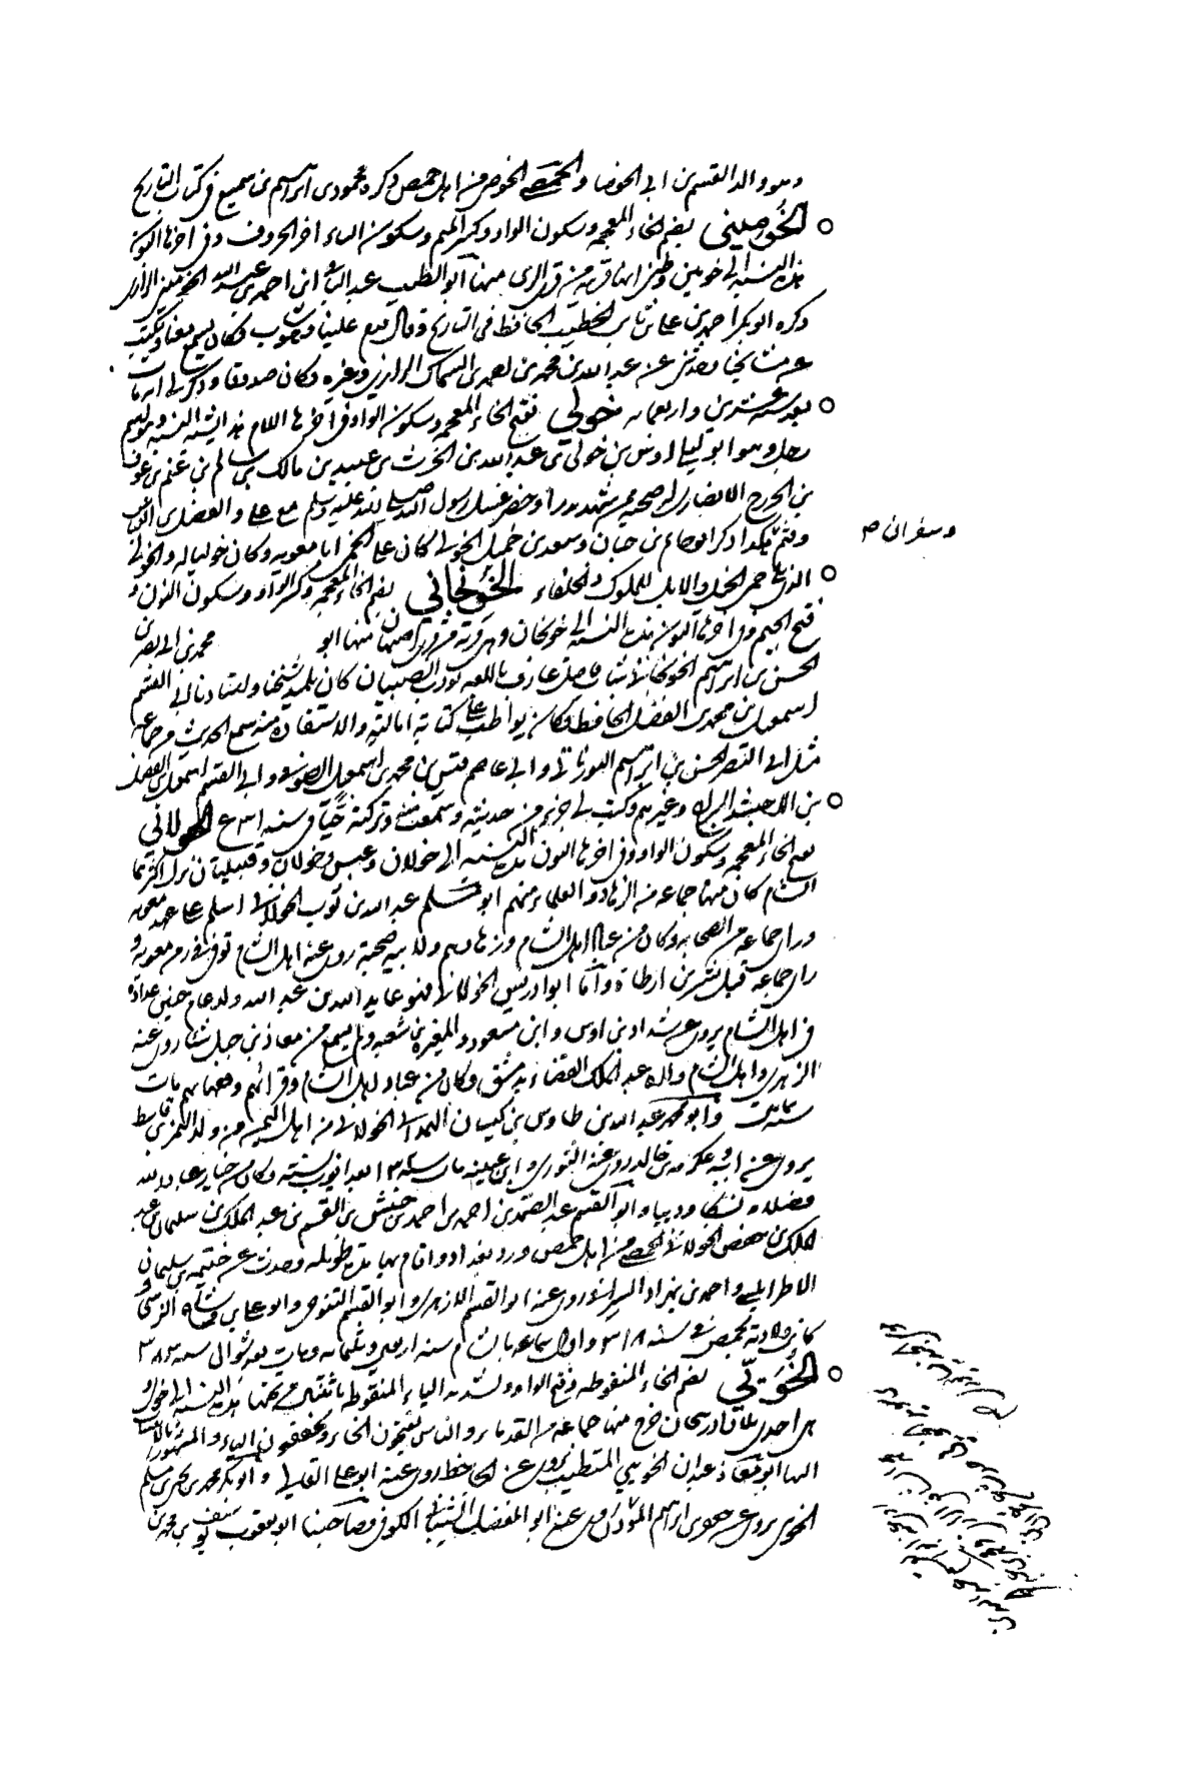 وهو والد القسم بن ابى الخوصا والحمصى الخوصى من اهل حمص ذكره محمود بن ابراهيم بن سميع فى كتاب التاريخ
الخُوميني بضم الخاء المعجمه وسكون الواو وكسر الميم وسكون الياء اخر الحروف وفى اخرها النون
هذه النسبة الى خومين وظنى انها قريه من قرى الرى منها ابو الطيب عبد الباقى ابن احمد بن عبد الله الخومينى الرازى
ذكره ابو بكر احمد بن على بن ثابت الخطيب الحافظ فى التاريخ وقال قدم علينا فكان يسمع معنا ويكتب
عن مشايخنا وحدثنى عن عبد الله بن محمد بن السماك الرازى وغيره وكان صدوقا وذكر لى انه مات
بعد سنه عشرين واربعمايه خَولي بفتح الخاء المعجمه وسكون الواو فى اخرها اللام هذا يشبه النسبه وهو اسم
رجل وهو ابو ليلى اوس بن خولى بن عبد الله بن الحرث بن عبيد بن مالك بن سالم بن غنم بن عوف
بن الخزرج الانصارى له صحبه ممن شهد بدرا وحضر غسل رسول الله صلى الله عليه وسلم مع على والفضل بن العباس
وقثم هكذا ذكر ابو حاتم بن حبان وسعد بن خميل الخولى كان على الحمى ايام معويه وكان خوليا له والخولى
الذى على حمى الخيل والابل للملوك والخلفاء الخُوِنجاني بضم الخاء المعجمه وكسر الواو وسكون النون و
فتح الجيم وفى اخرها النون هذه النسبه الى خونجان وهى قريه من قرى اصبهان منها ابو محمد بن ابى نصر بن
الحسن بن ابراهيم الخونجانى شاب فاضل عارف باللغه يودب الصبيان كان تلميذ شيخنا واستاذنا ابى القسم
اسمعيل بن محمد بن الفضل الحافظ وكان يواظب على كتابة اماليه والاستفاده منه سمع الحديث من جماعه
مثل ابى النصر الحسن بن ابراهيم اليونارتى وابى عاصم قتيس بن محمد بن اسمعيل الصوفى وابى القسم اسمعيل بن الفضل
بن الاخشيد السراج وغيرهم وكتب لى جزء من حديثه وسمعت منه وتركته حيا فى سنه الخولاني
بفتح الخاء المعجمه وسكون الواو وفى اخرها النون هذه النسبه الى خولان وعبس وخولان قبيلتان نزل اكثرها
الشام كان منها جماعه من الزهاد والعلماء منهم ابو مسلم عبد الله بن ثوب الخولانى اسلم على عهد معويه
وراى جماعه من الصحابه وكان من عباد اهل الشام وزهادهم ولابيه صحبة روى عنه اهل الشام توفى فى زمن معويه و
راى جماعه قبل بسر بن ارطاة واما ابو ادريس الخولانى فهو عايذ الله بن عبد الله ولد عام حنين عداده
فى اهل الشام يروى عن شداد بن اوس وابن مسعود والمغيره بن شعبه ولم يسمع من معاذ بن جبل شيئا روى عنه
الزهرى واهل الشام ولاه عبد الملك القضاء بدمشق وكان من عباد اهل الشام وقرائهم وفقهائهم مات
سنه ثمانين وابو محمد عبد الله بن طاوس بن كيسان الهمدانى الخولانى من اهل اليمن من ولد النمر بن قاسط
يروى عن ابيه وعكرمه بن خالد روى عنه الثورى وابن عيينه مات بعد ايوب بسنه وكان من خيار عباد الله
فضلا ونسكا ودينا وابو القسم عبد الصمد بن احمد بن خنبش بن القسم بن عبد الملك بن سليمان بن عبد
الملك بن حفص الخولانى الحمصى من اهل حمص ورد بغداد واقام بها مدة طويله وحدث عن خيثمه بن سليمان
الاطرابلسى واحمد بن بهزاد السيرافى روى عنه ابو القسم الازهرى وابو القسم التنوخى وابو على بن النرسى و
كانت ولادته بحمص فى سنه ٣١٨ واول سماعه بالشام سنه اربعين وثلثمايه ومات بعد شوال سنه ٣٨٣
الخُوَيّي بضم الخاء المنقوطه وفتح الواو وتشديد الياء المنقوطه باثنتين من تحتها هذه النسبه الى خوى و
هى احدى بلاد اذربيجان خرج منها جماعه من القدماء والناس يفتحون الخاء ويخففون الياء والمشهور بالنسبه
اليها ابو معاذ عبدان الخويي المتطبب يروى عن الجاحظ روى عنه ابو على القالى وابو بكر محمد بن يحيى بن مسلم
الخوى يروى عن جعفر بن ابراهيم المؤذن روى عنه ابو المفضل الشيبانى الكوفى وصاحبنا ابو يعقوب يوسف بن محمد بن